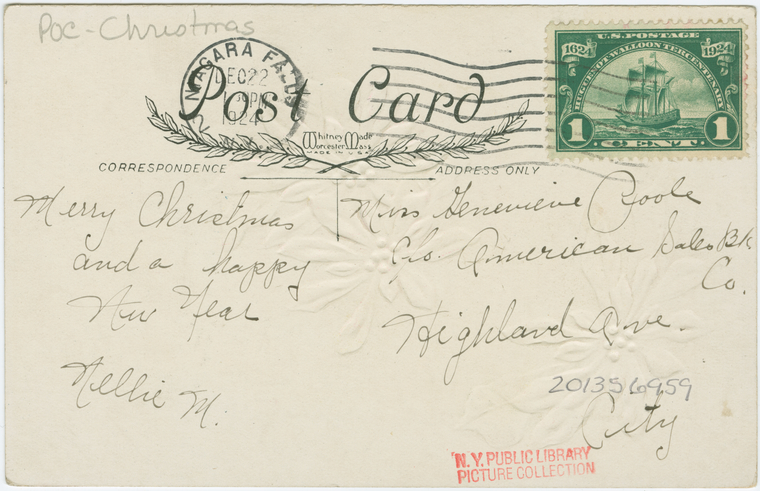 Poc-Christmas
NIAGARA FALLS
DEC 22
1924
N.Y.
Post Card
Whitney Made
Worcester, Mass.
MADE IN U.S.A.
U.S. POSTAGE
1624 1924
HUGUENOT WALLOON TERCENTENARY
1 1
CENT
CORRESPONDENCE
ADDRESS ONLY
Merry Christmas
and a happy
New Year
Nellie M.
Miss Genevieve Poole
c/o American Sales Bk
Co.
Highland Ave.
City
201356959
N.Y. PUBLIC LIBRARY
PICTURE COLLECTION